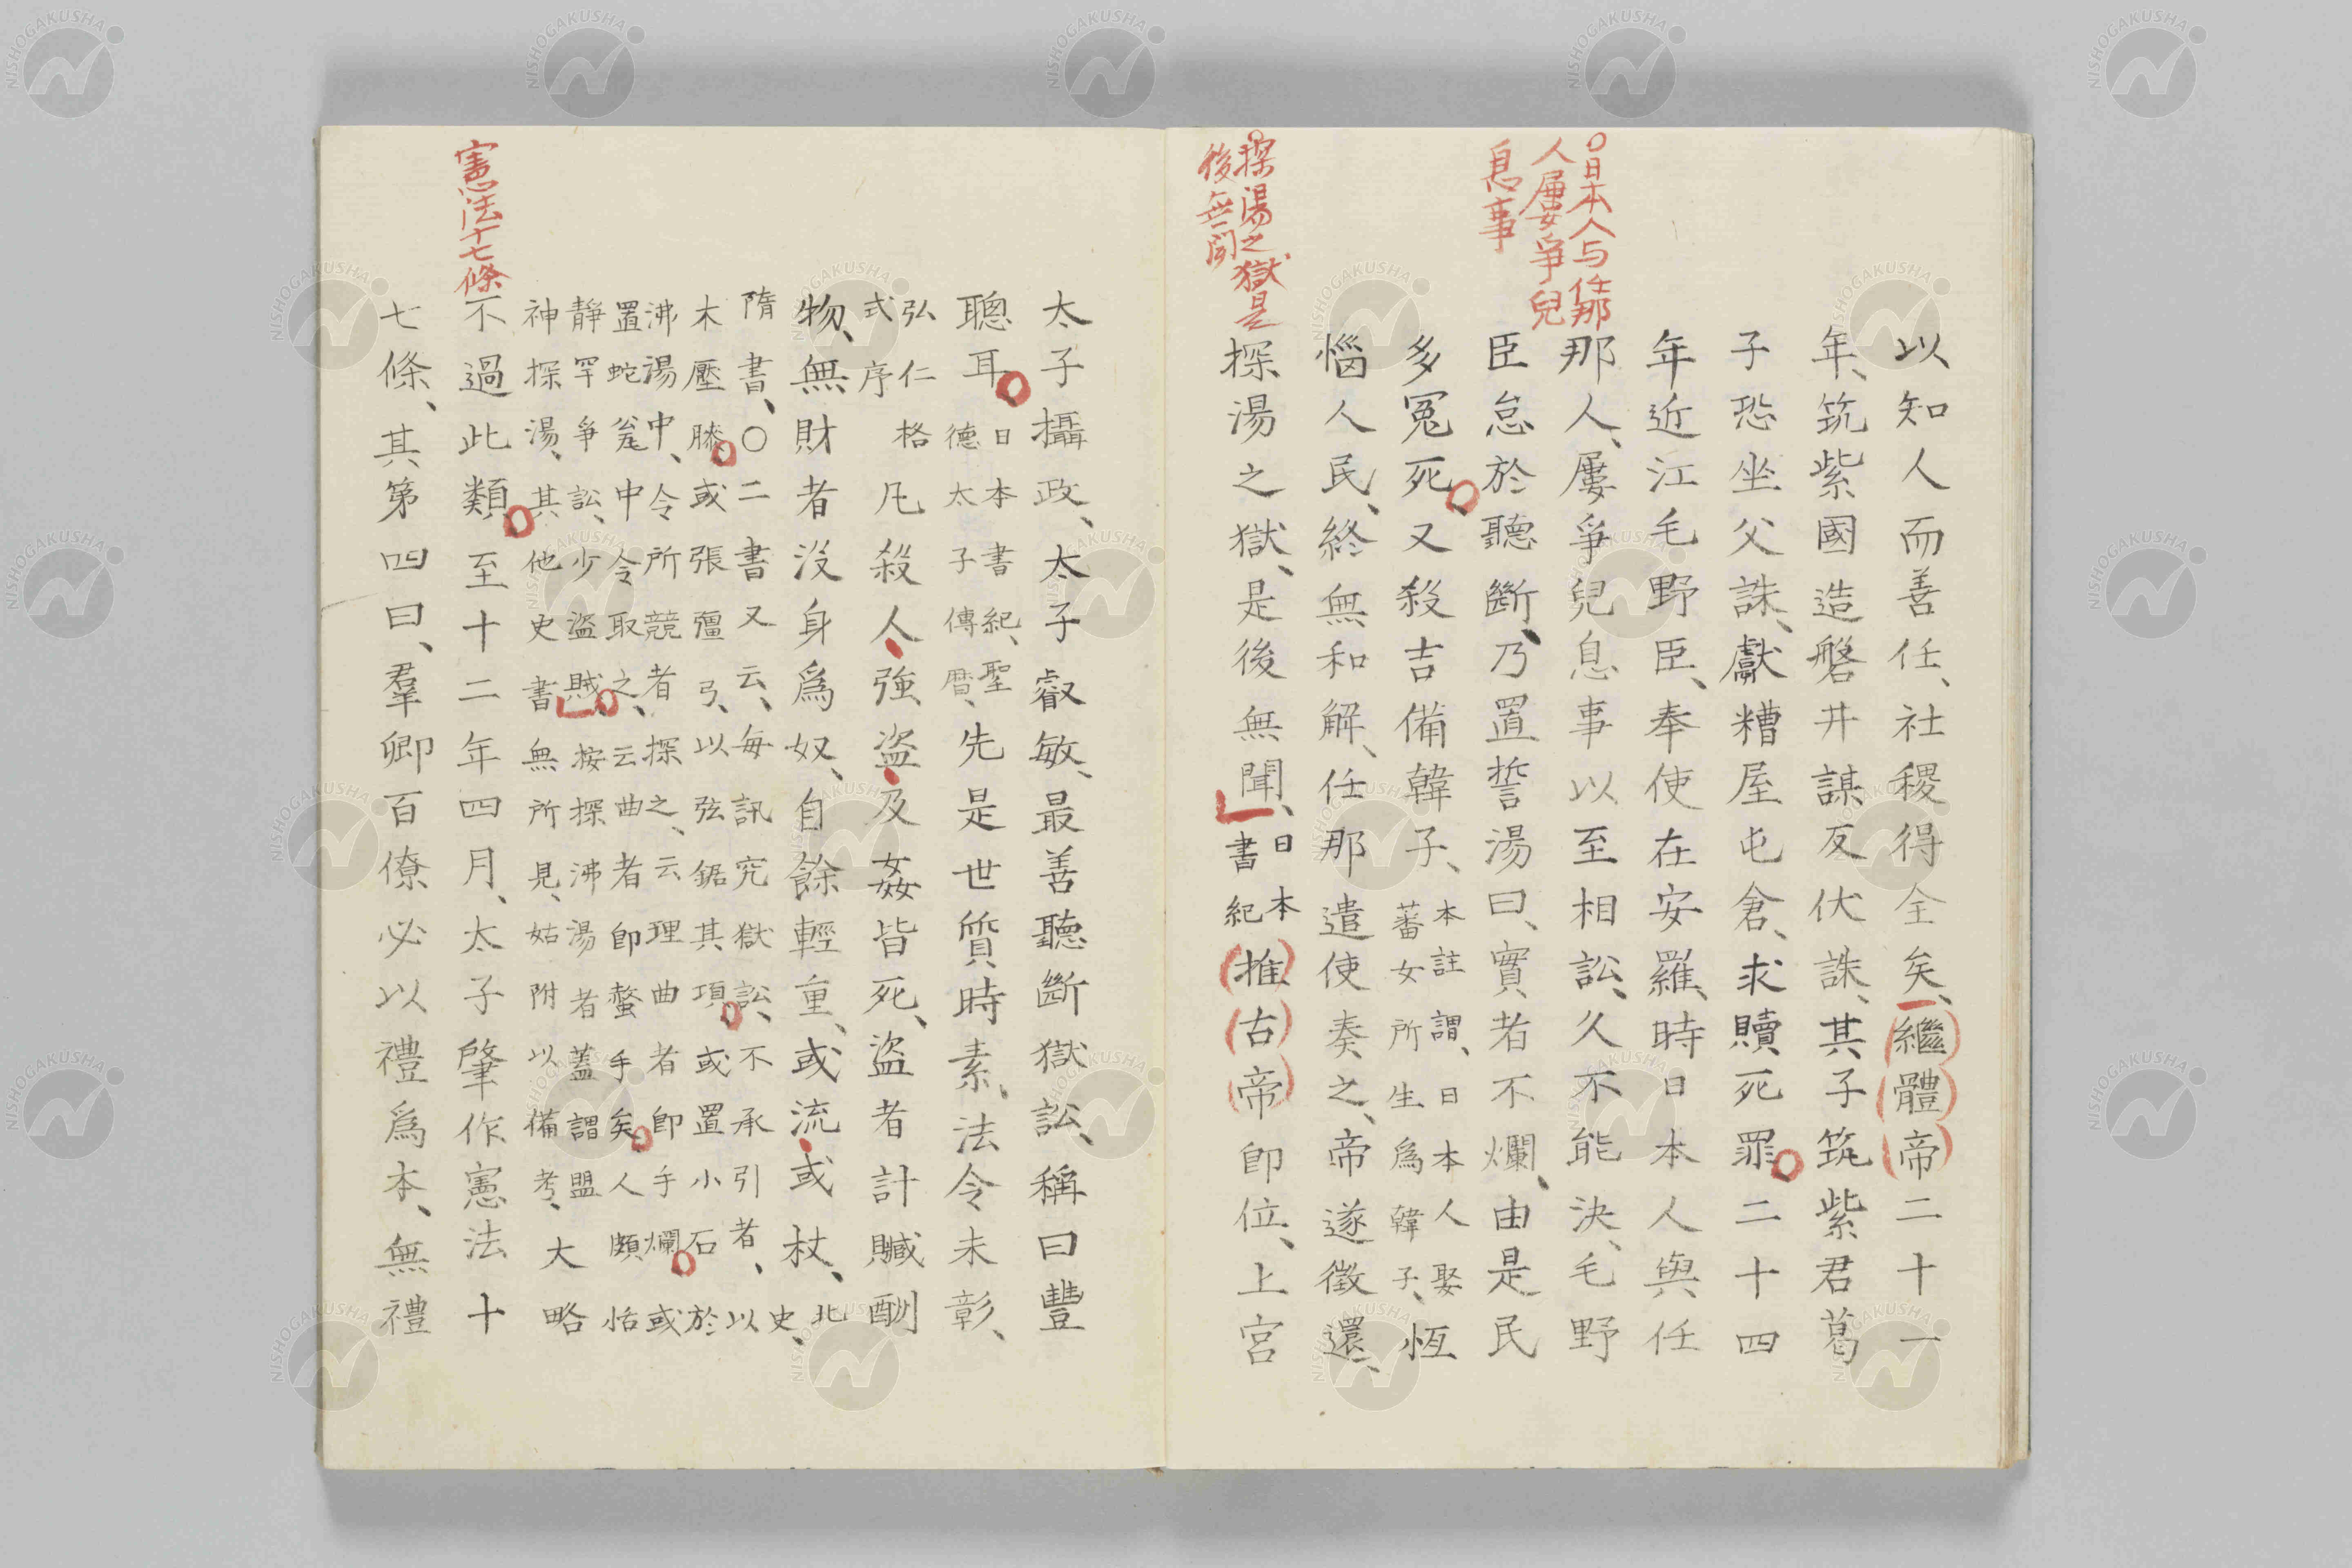 ○日本人与任那
人屢爭兒
息事
○探湯之獄是
後無聞
以知人而善任、社稷得全矣、繼體帝二十一
年、筑紫國造磐井謀反伏誅、其子筑紫君葛
子恐坐父誅、獻糟屋屯倉、求贖死罪、二十四
年近江毛野臣、奉使在安羅、時日本人與任
那人、屢爭兒息事以至相訟、久不能決、毛野
臣怠於聽斷、乃置誓湯曰、實者不爛、由是民
多冤死、又殺吉備韓子、本註謂、日本人娶
蕃女所生爲韓子、恆
惱人民、終無和解、任那遣使奏之、帝遂徵還、
探湯之獄、是後無聞、日本
書紀推古帝卽位、上宮
憲法十七條
太子攝政、太子叡敏、最善聽斷獄訟、稱曰豐
聰耳、日本書紀、聖
德太子傳曆、先是世質時素、法令未彰、
弘仁格
式序凡殺人、強盜、及姦皆死、盜者計贓酬
物、無財者沒身爲奴、自餘輕重、或流、或杖、北史、
隋書、○二書又云、每訊究獄訟、不承引者、以
木壓膝、或張彊弓、以弦鋸其項、或置小石於
沸湯中、令所競者探之、云理曲者卽手爛、或
置蛇瓮中令取之、云曲者卽螫手矣、人頗恬
靜罕爭訟、少盜賊、按探沸湯者蓋謂盟
神探湯、其他史書無所見、姑附以備考、大略
不過此類、至十二年四月、太子肇作憲法十
七條、其第四曰、羣卿百僚必以禮爲本、無禮
NISHOGAKUSHA